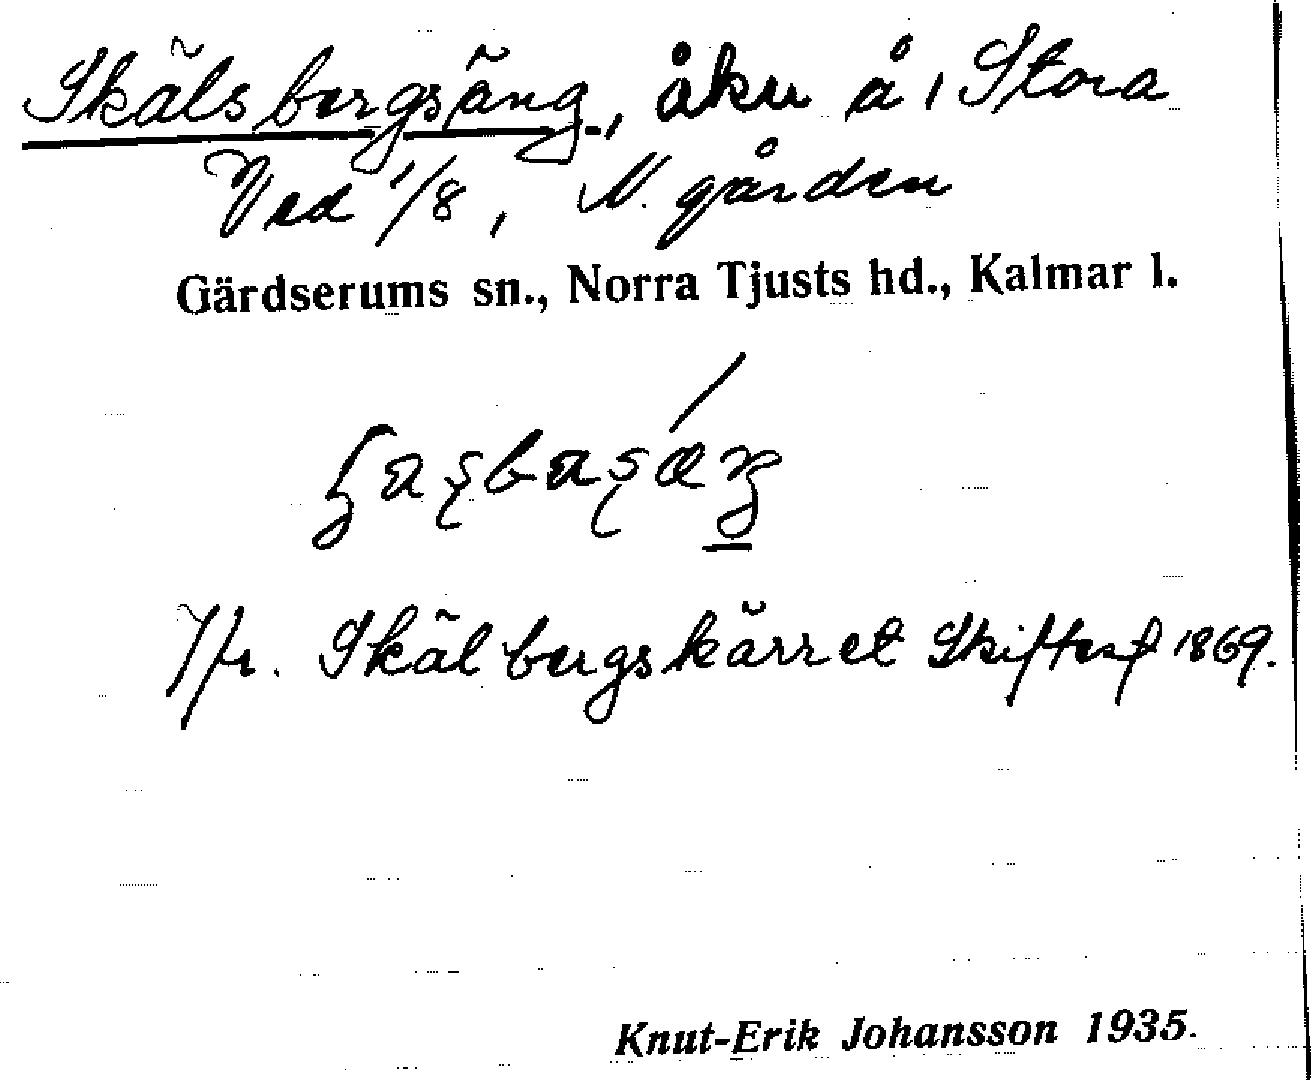 Skälsbergsäng, åker å, Stora
Ved 1/8, N. gården
Gärdserums sn., Norra Tjusts hd., Kalmar l.
Jfr. Skälbergskärret Skiftesf 1869.
Knut-Erik Johansson 1935.